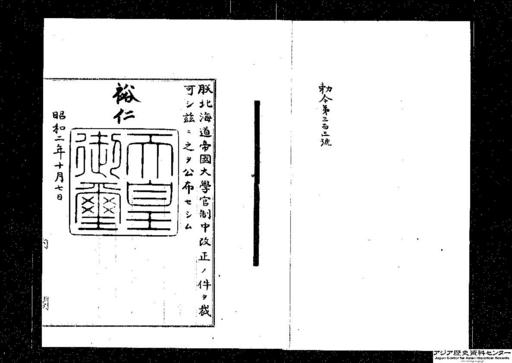 勅令第三百三號
朕北海道帝國大學官制中改正ノ件ヲ裁
可シ茲ニ之ヲ公布セシム
裕仁
天皇御璽
昭和二年十月七日
アジア歴史資料センター
Japan Center for Asian Historical Records